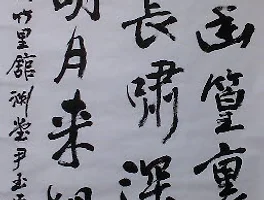 幽篁裏
長嘯深
明月来相
竹里館 渊堂尹玉